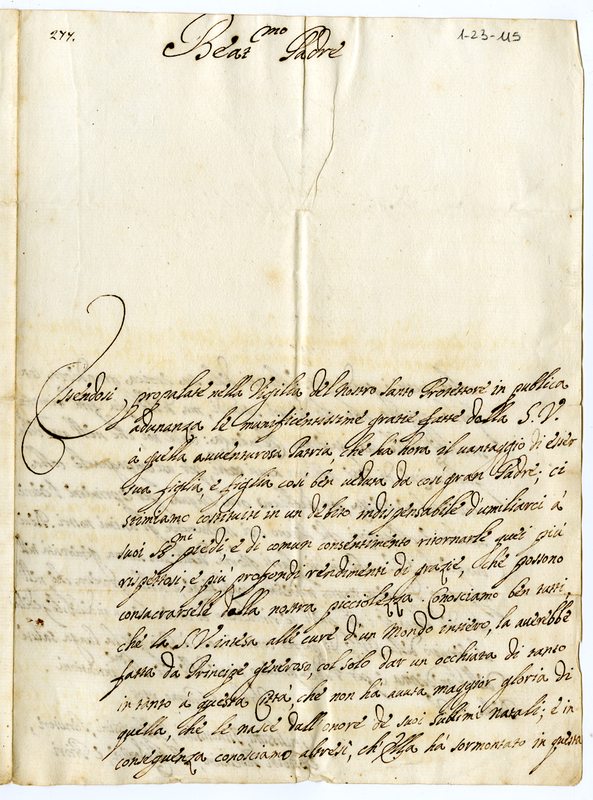 277.
1-23-115
Beat.mo Padre
Essendosi propalate nella Vigilia del nostro Santo Protettore in publica
adunanza le munificentissime gratie fatte dalla S. V.
a questa avventurosa Patria, che ha hora il vantaggio di esser
sua figlia, e figlia così ben veduta da così gran Padre; ci
stimiamo costituiti in un debito indispensabile d'umiliarci à
suoi SS.mi piedi e di comun consentimento ritornarle quei più
rispettosi, e più profondi rendimenti di grazie, che possono
consacrarsele dalla nostra picciolezza. Conosciamo ben tutti,
che la S. V. intesa alle cure d'un Mondo intiero, la averebbe
fatta da Principe generoso, col solo dar un occhiata di tanto
in tanto à questa Città, che non há avuta maggior gloria di
quella, che le nasce dall'onore de suoi sublimi natali; e in
conseguenza conosciamo altresì, ch'Ella há sormontato in questa